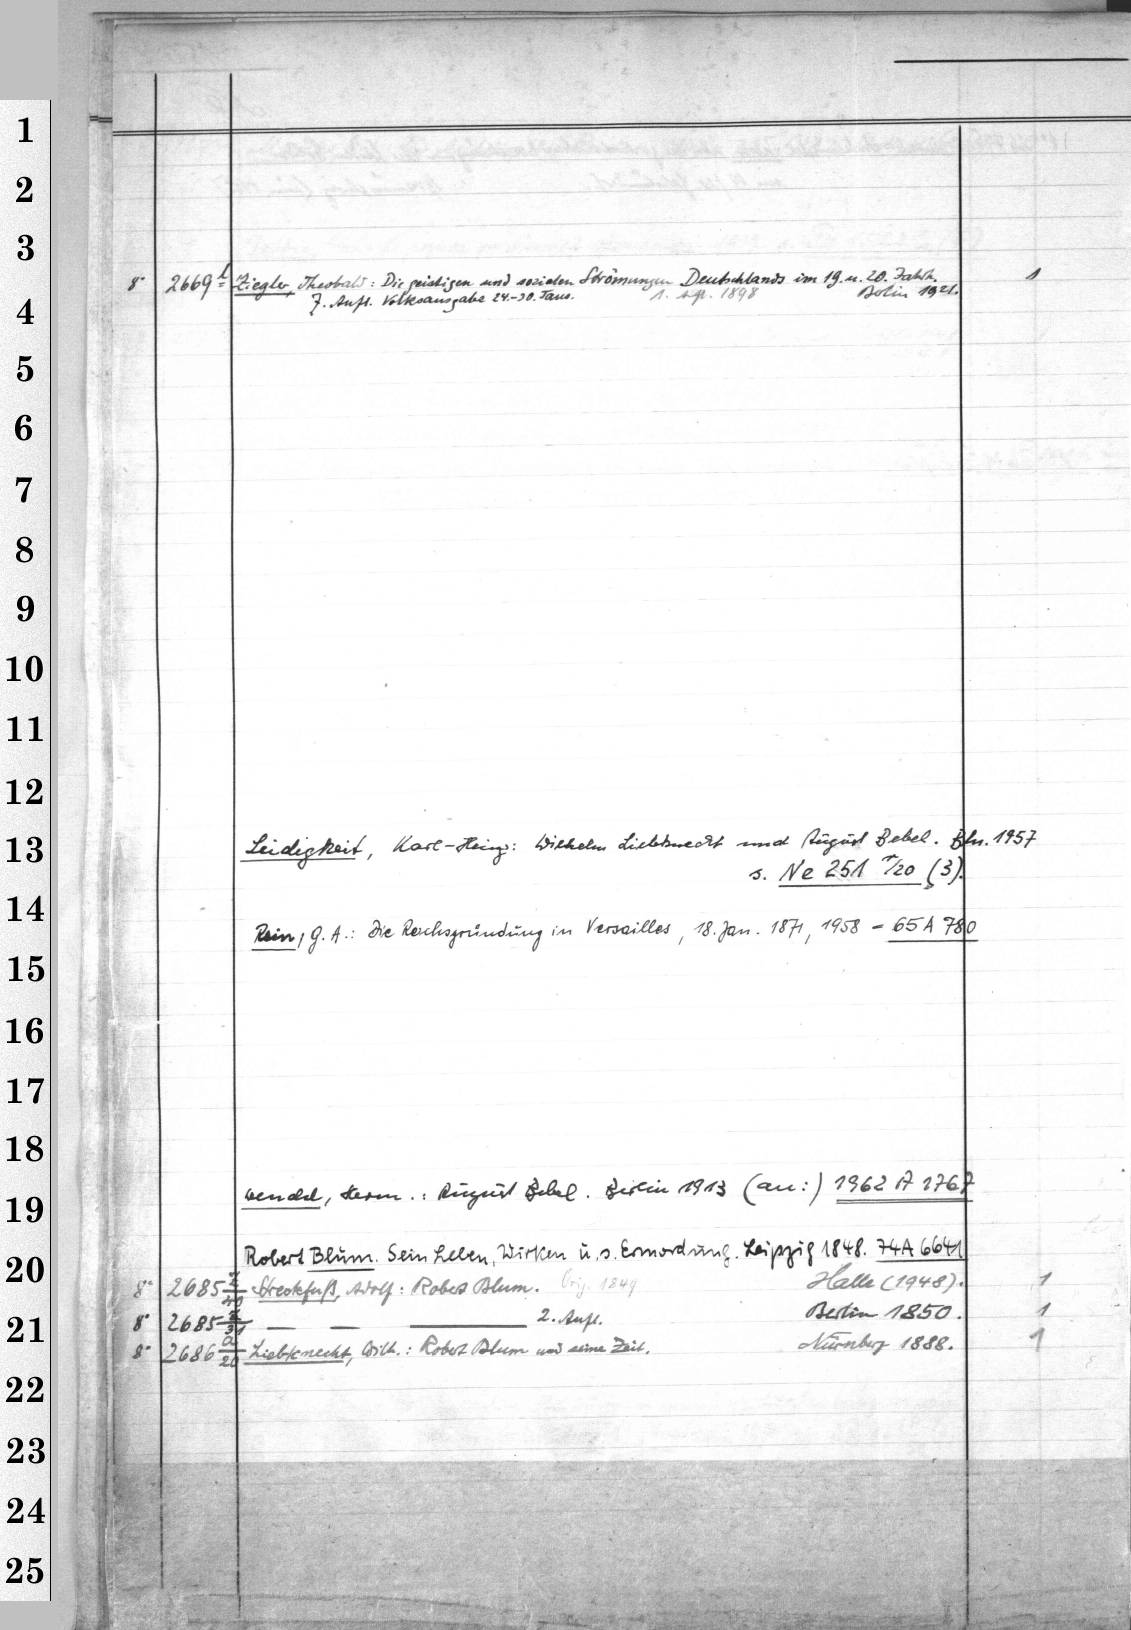 1
2
3
8° 2669 f Ziegler, Theobald: Die geistigen und sozialen Strömungen Deutschlands im 19. u. 20. Jahrh. 1
7. Aufl. Volksausgabe 24.-30. Taus. 1. Afl. 1898 Berlin 1921.
4
5
6
7
8
9
10
11
12
13
Leidigkeit, Karl-Heinz: Wilhelm Liebknecht und August Bebel. Bln. 1957
s. Ne 251 r/20 (3).
14
Rein, G. A.: Die Reichsgründung in Versailles, 18. Jan. 1871, 1958 - 65 A 780
15
16
17
18
Wendel, Herm.: August Bebel. Berlin 1913 (an:) 1962 A 1767
19
Robert Blum. Sein Leben, Wirken u. s. Ermordung. Leipzig 1848. 74A 6641
20
8° 2685 Streckfuß, Adolf: Robert Blum. Orig. 1849 Halle (1948). 1
8° 2685 — — — 2. Aufl. Berlin 1850. 1
21
8° 2686 a/20 Liebknecht, Wilh.: Robert Blum und seine Zeit. Nürnberg 1888. 1
22
23
24
25